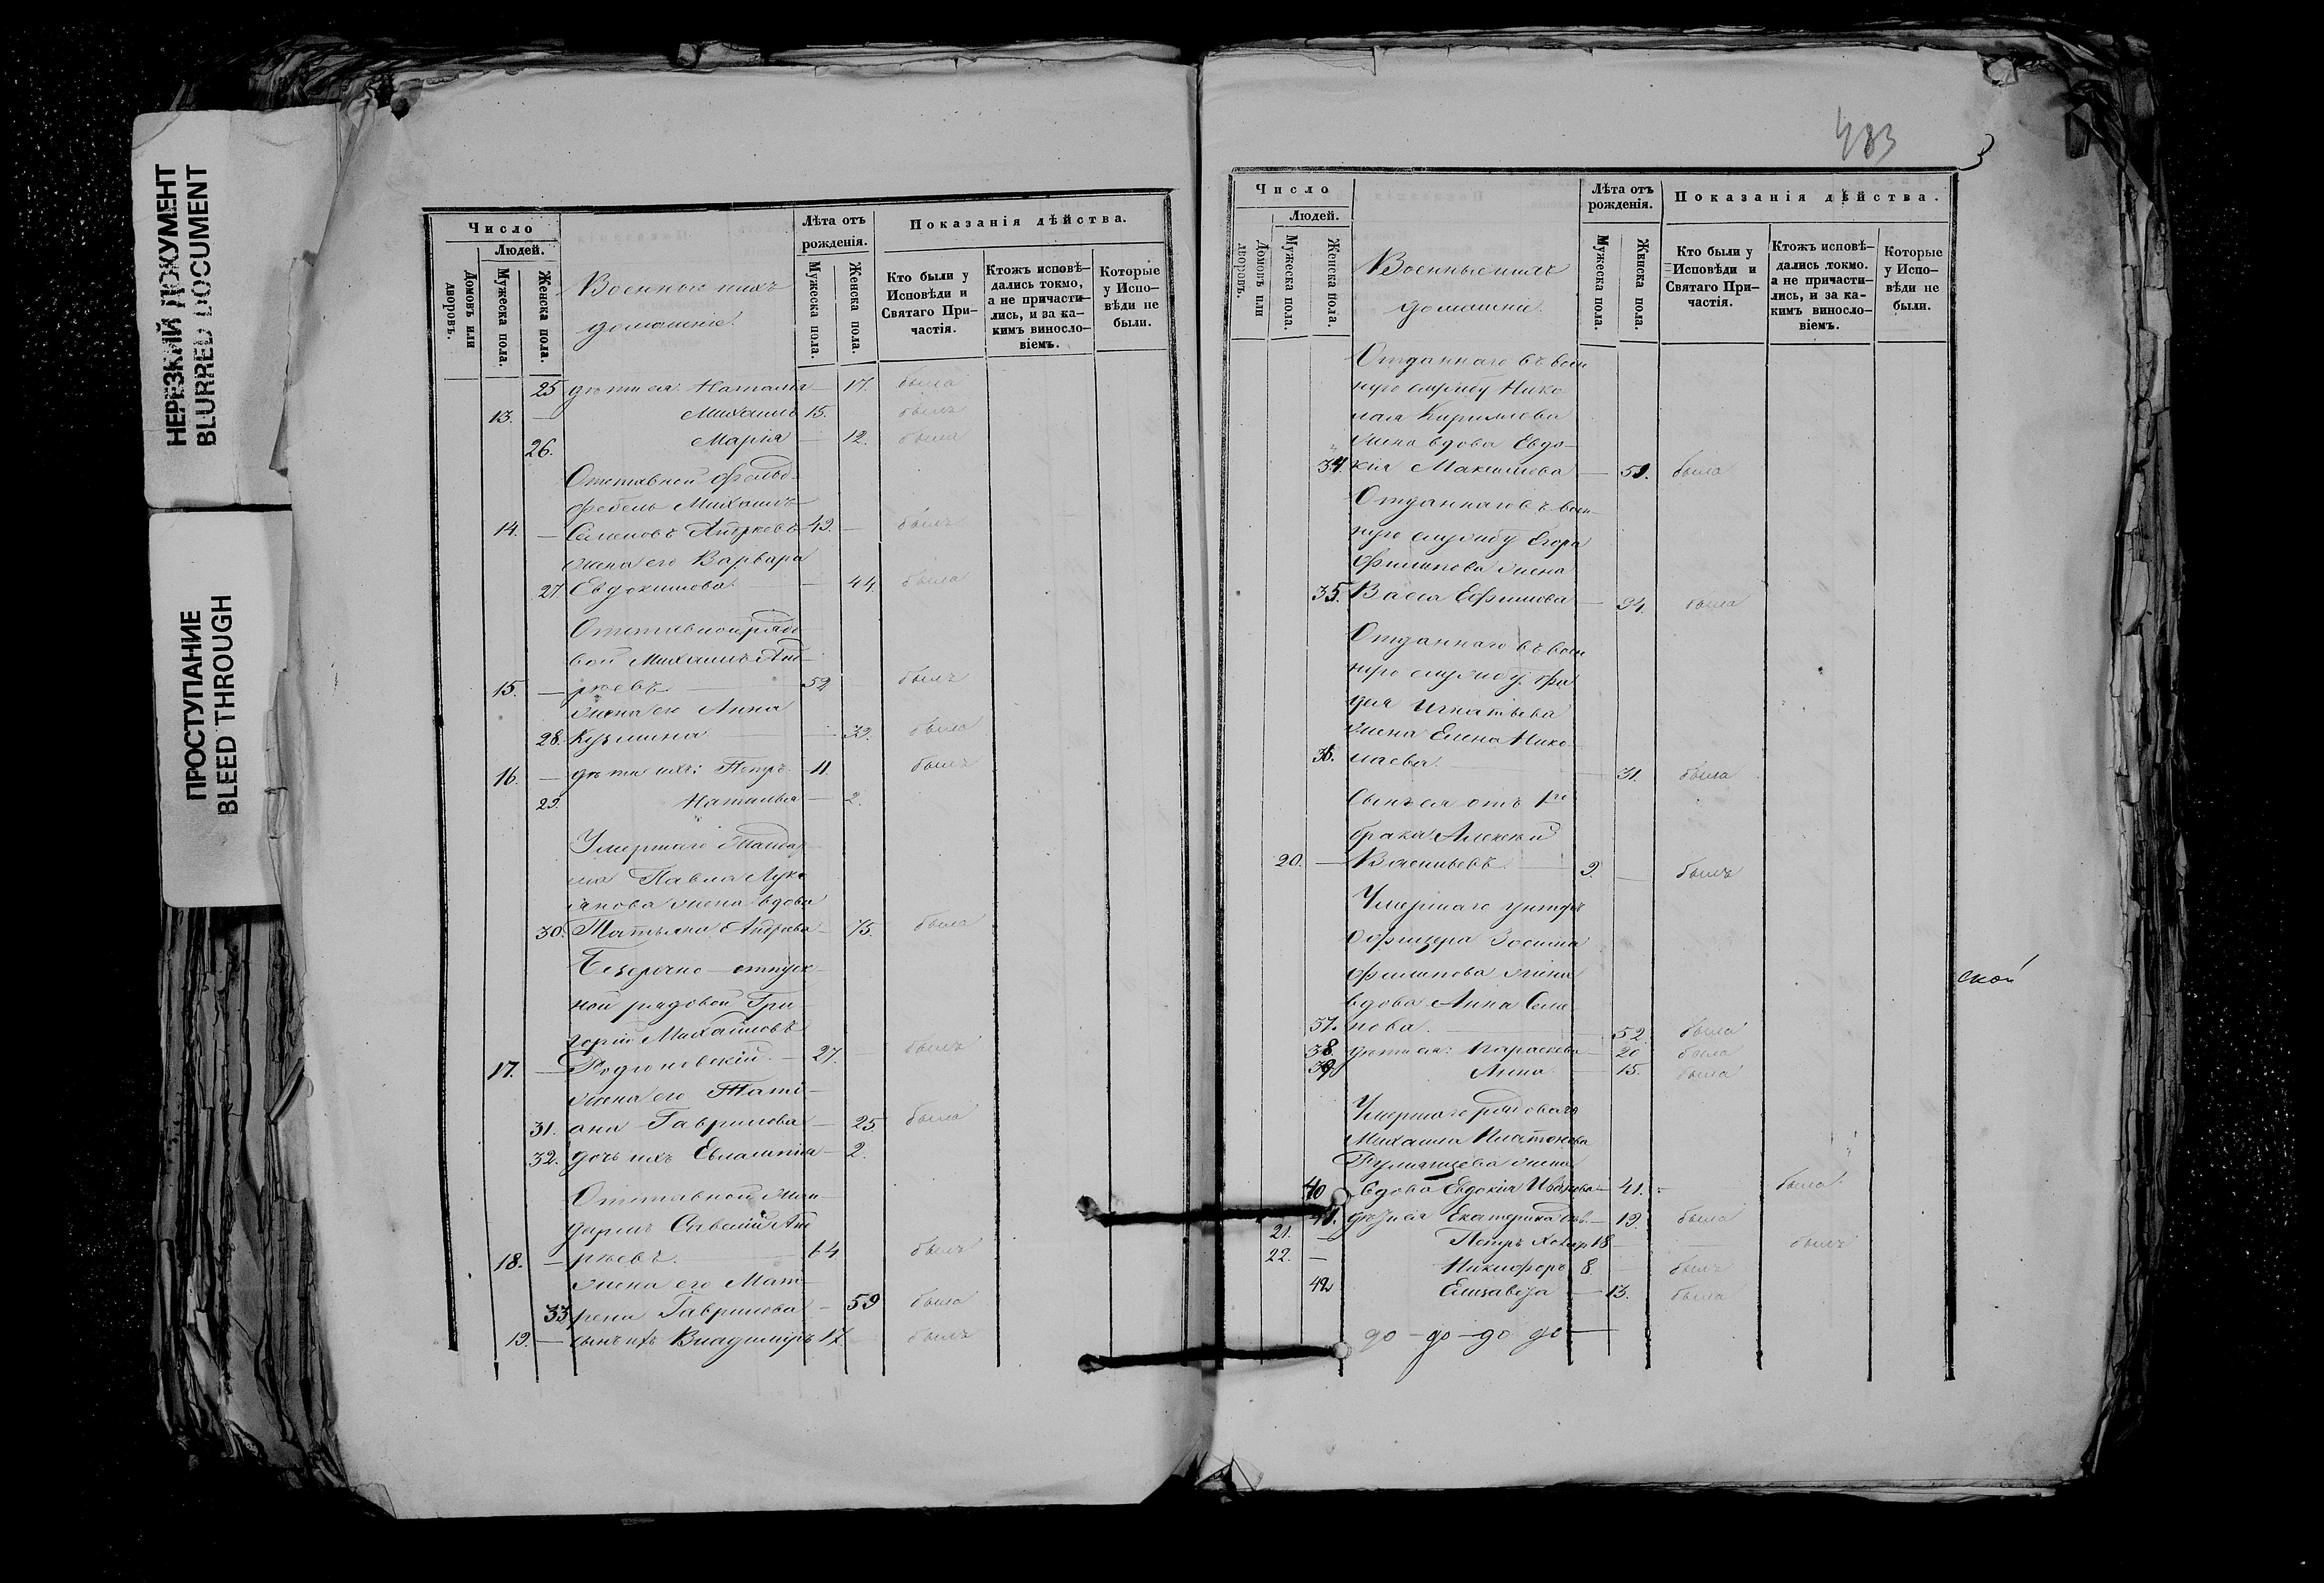 НЕРЕЗКИЙ ДОКУМЕНТ
BLURRED DOCUMENT
ПРОСТУПАНИЕ
BLEED THROUGH
Число
Людей.
Домовъ или дворовъ.
Мужеска пола.
Женска пола.
Военные и ихъ
домашніе.
Лѣта отъ рожденія.
Мужеска пола.
Женска пола.
Показанія дѣйства.
Кто были у Исповѣди и Святаго Причастія.
Ктожъ исповѣдались токмо, а не причастились, и за какимъ винословіемъ.
Которые у Исповѣди не были.
25 дѣти ея: Наталья — 17. была
13. — Михаилъ 15. былъ
26. Марія — 12. была
Отставной фельд-
фебель Михаилъ
14. — Семеновъ 49. — былъ
жена его Варвара
27. Евдокимова — 44. была
Отставной рядо-
вой Михаилъ Анд-
15. — рѣевъ — 52 былъ
жена его Анна
28. Кузьмина — 39. была
16. — дѣти ихъ: Петръ 11. былъ
29. Наталья — 2.
Умершаго жандар
ма Павла Лукь
янова жена вдова
30. Татьяна Андреева — 75. была
Безсрочно-отпуск-
ной рядовой Гри-
горій Михайловъ
17. — Родіоновскій — 27. былъ
жена его Татi-
31. ана Гаврилова — 25. была
32. дочь ихъ Евлампія — 2.
Отставной жан-
дармъ Савелій Анд
18. — рѣевъ. — 64 былъ
жена его Мат-
33 рена Гаврилова — 59 была
19. — сынъ ихъ Владиміръ 17. былъ
483
Число
Людей.
Домовъ или дворовъ.
Мужеска пола.
Женска пола.
Военные и ихъ
домашніе.
Лѣта отъ рожденія.
Мужеска пола.
Женска пола.
Показанія дѣйства.
Кто были у Исповѣди и Святаго Причастія.
Ктожъ исповѣдались токмо. а не причастились, и за какимъ винословіемъ.
Которые у Исповѣди не были.
Отданнаго въ воен
ную службу Нико
лая Кирилова
жена вдова Евдо-
34. кія Максимова — 51. была
Отданнаго въ воен-
ную службу Егора
Филипова жена
35. Васса Ефимова — 34. была
Отданнаго въ воен
ную службу Фа
дея Игнатьева
жена Елена Нико-
36. лаева. — 31. была
Сынъ ея отъ 1го
брака Алексѣй
20. — Васильевъ. — 9. — былъ
Умершаго унтеръ
офицера Зосима
Филипова жена
вдова Анна Семе
37. нова. — 52. была
38. дѣти ея: Параскева — 20 была
39 Анна — 15. была
Умершаго рядоваго
Михаила Платонова
Румянцева жена
40 вдова Евдокія Иванова — 41. была
41. дѣти ея Екатерина — 19. была
21. — Петръ 18 — былъ
22. — Никифоръ 8. былъ
42 Елизавета — 13. была
до — до — до до —
ской